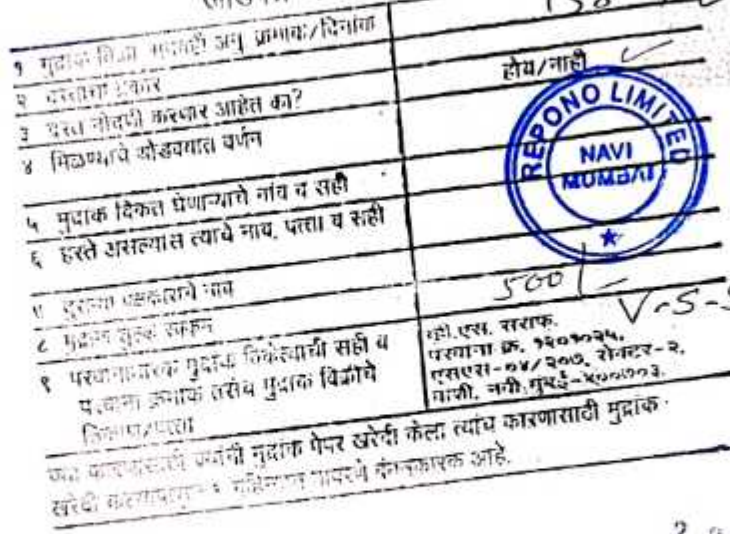 १ मुद्रांक विक्री अनु क्रमांक/दिनांक
२ दस्ताचा प्रकार
३ दस्त नोंदणी करणार आहेत का? होय/नाही
४ मिळकतीचे थोडक्यात वर्णन
REPONO LIMITED
NAVI
MUMBAI
५ मुद्रांक विकत घेणाऱ्याचे नांव व सही
६ हस्ते असल्यास त्याचे नाव, पत्ता व सही
दुसऱ्या पक्षकाराचे नाव
८ मुद्रांक शुल्क रक्कम 500/-
V-S-S
९ परवानाधारक मुद्रांक विक्रेत्याची सही व
परवाना क्रमांक तसेच मुद्रांक विक्रीचे
ठिकाण/पत्ता
व्ही.एस. सराफ.
परवाना क्र. १२०१०२५,
एसएस-०४/२०७, सेक्टर-२,
वाशी, नवी मुंबई-४००७०३.
ज्या कारणासाठी ज्यांनी मुद्रांक पेपर खरेदी केला त्यांच कारणासाठी मुद्रांक
खरेदी केल्यापासून ६ महिन्यात वापरणे बंधनकारक आहे.